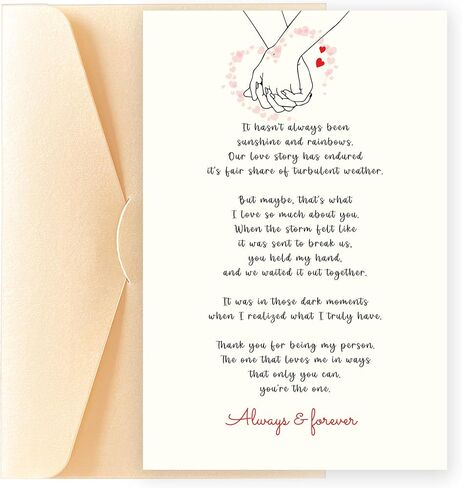 It hasn't always been
sunshine and rainbows.
Our love story has endured
it's fair share of turbulent weather.
But maybe, that's what
I love so much about you.
When the storm felt like
it was sent to break us,
you held my hand,
and we waited it out together.
It was in those dark moments
when I realized what I truly have.
Thank you for being my person.
The one that loves me in ways
that only you can,
you're the one.
Always & forever